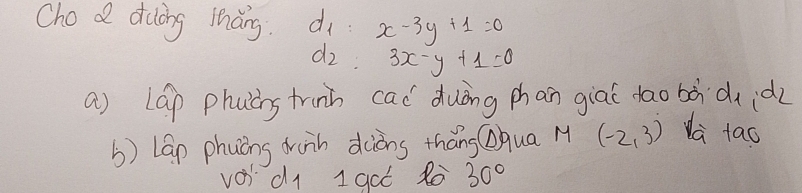 Cho 2 đường thẳng. d1 : x - 3y + 1 = 0
d2 : 3x - y + 1 = 0
a) Lập phương trình các đường phân giác tạo bởi d1, d2
b) Lập phương trình đường thẳng Δ qua M (-2,3) và tạo
với d1 1 góc là 30°